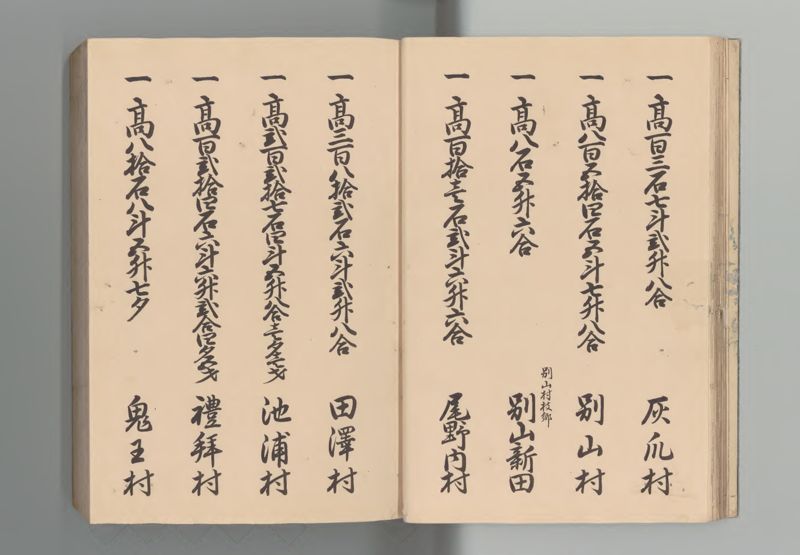 一 高百三石七斗弐升八合 灰爪村
一 高八百五拾四石五斗七升八合 別山村
別山村枝郷
一 高八石五升六合 別山新田
一 高百拾壱石弐斗六升六合 尾野内村
一 高三百八拾弐石六斗弐升八合 田澤村
一 高弐百弐拾七石四斗五升八合壱夕壱才 池浦村
一 高百弐拾四石六斗六升弐合四夕五才 禮拜村
一 高八拾石八斗五升七夕 鬼王村